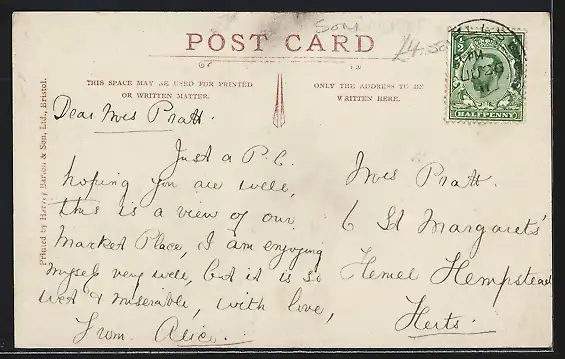 Som
£4.50
POST CARD
THIS SPACE MAY BE USED FOR PRINTED
OR WRITTEN MATTER.
ONLY THE ADDRESS TO BE
WRITTEN HERE.
HALFPENNY
Printed by Harvey Barton & Son, Ltd., Bristol.
Dear Mrs Pratt.
Just a P.C.
hoping you are well,
this is a view of our
Market Place, I am enjoying
myself very well, but it is so
wet & miserable, with love,
From Alice.
Mrs Pratt.
6 St Margarets'
Hemel Hempstead
Herts.